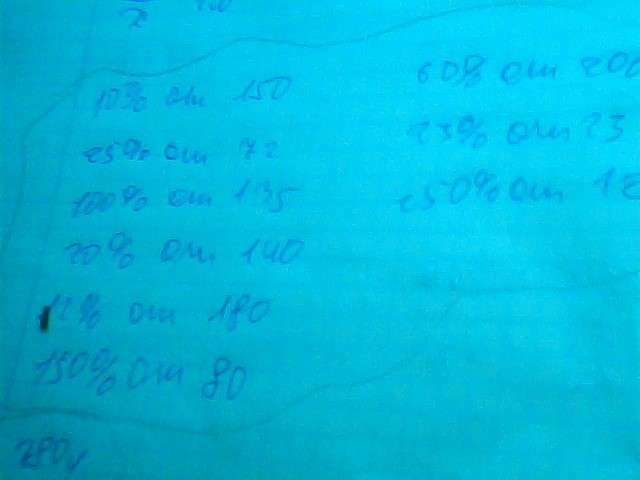 10% от 150
25% от 72
100% от 135
20% от 140
12% от 180
150% от 80
60% от 200
23% от 23
250% от 12